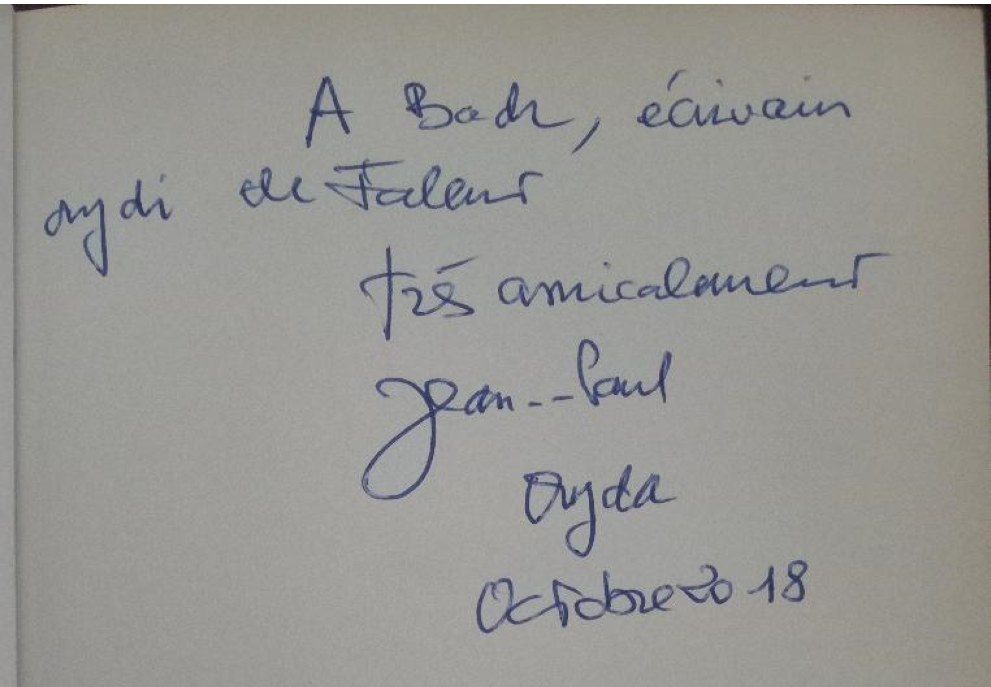 A Badr, écrivain
oujdi de Talent
très amicalement
Jean--Paul
Oujda
Octobre 2018